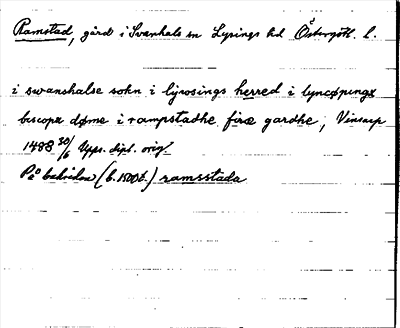 Ramstad, gård i Svanhals sn Lysings hd Östergötl. l.
i swanshalse sokn i lyrosings herred i lyncøpungx
biscops døme i rampstadhe firæ gardhe; Vinsarp
1488 30/6 Upps. dipl. orig
På baksidan (b. 1500 t.) ramsstada